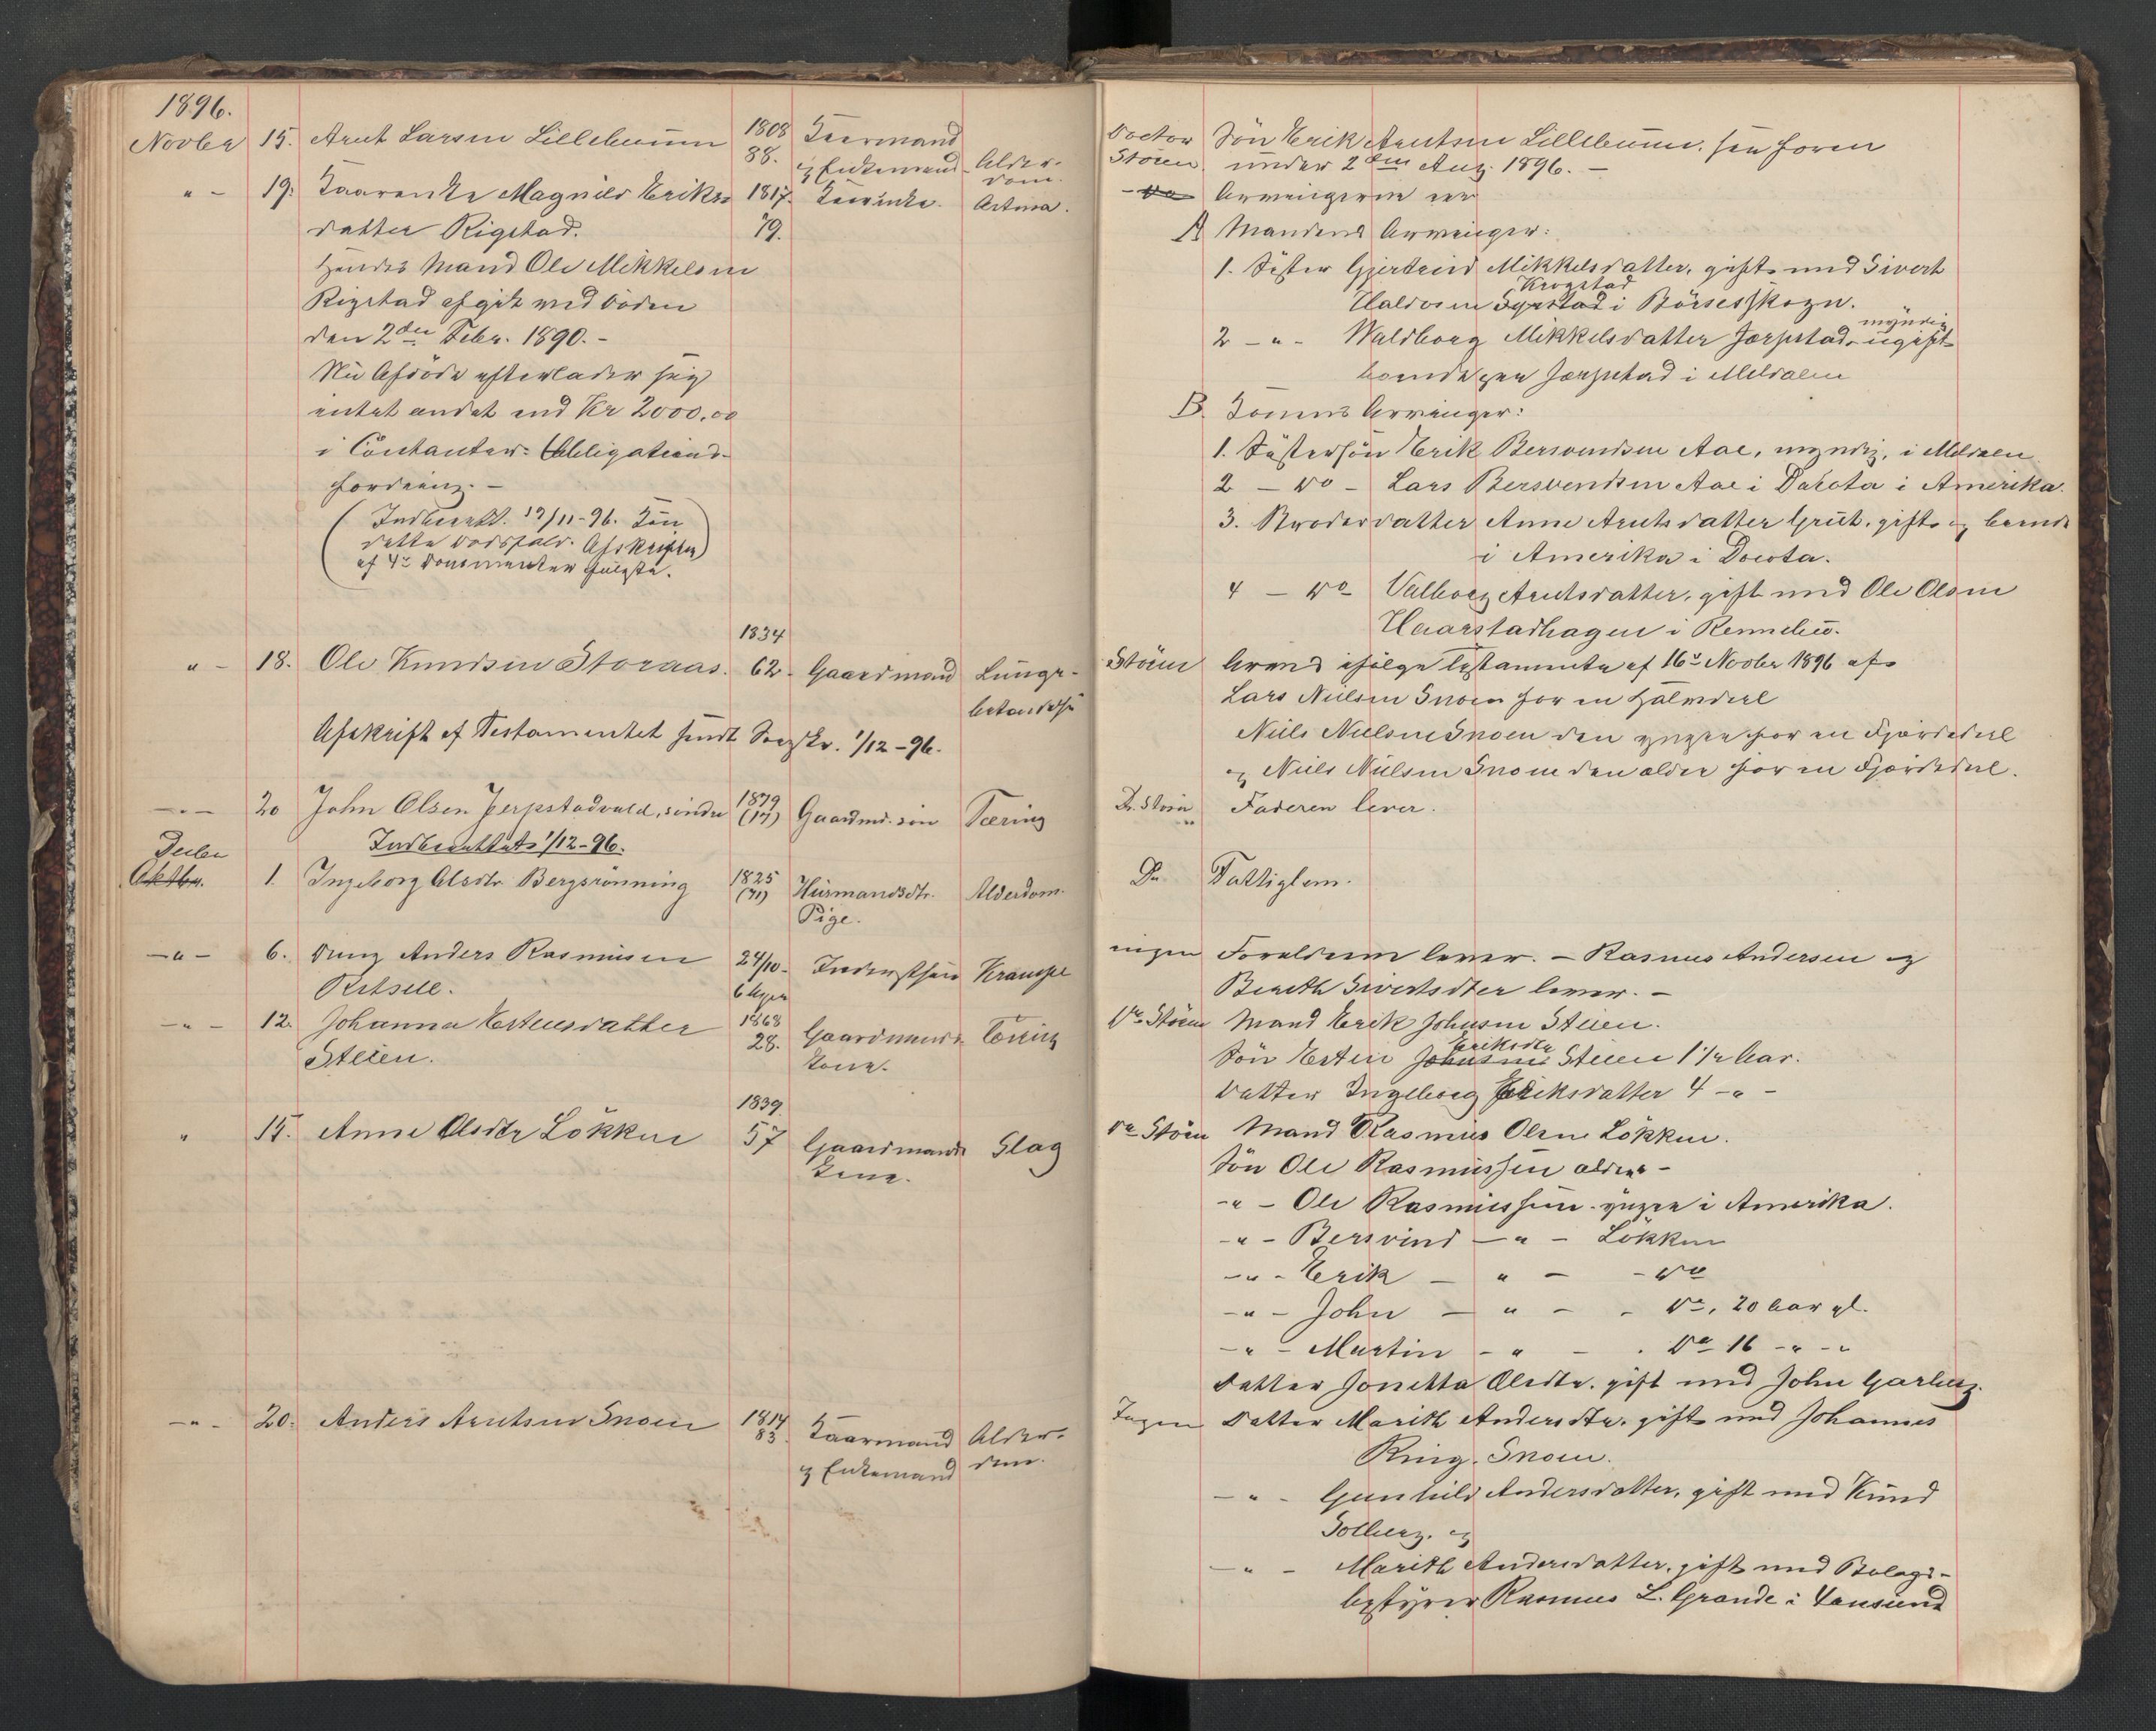 1896.
Novber 15. Arnt Larsen Lillebuum 1808 88. Kaarmand
& Enkemand Alder-
dom.
" - 19. Kaarenke Magnild Eriks- 1817. Kaarenke. Astma.
datter Rigstad. 79.
Hendes Mand Ole Mikkelsen
Rigstad afgik ved Døden
den 2den Febr. 1890. -
Nu Afdøde efterlader sig
intet andet end Kr 2000,00
i Contanter = Obligations-
fordring. -
(Indberett. 19/11-96. Kun
dette Dødsfald. Afskrifter
af 4 Documenter fulgte.)
1834
" - 18. Ole Knudsen Storaas. 62. Gaardmand Lunge-
betændelse
Afskrift af Testamentet sendt Sorskr. 1/12-96.
-"- 20 John Olsen Jerpstadvald, søndre 1879 (17) Gaardmd. søn Tæring
Indberettet 1/12-96.
Decbr
Oktbr. 1. Ingeborg Olsdtr. Bergsrønning 1825 (71) Husmandsdtr. Alderdom.
Pige.
-"- 6. Dreng Anders Rasmusen 24/10- Inderstsøn Krampe
6 Uger
-"- 12. Johanna Estensdatter 1868 28. Gaardmands Tæring
Steien. Kone.
1839
" 15. Anne Olsdtr Løkken 57 Gaardmands Slag
Kone.
-"- 20. Anders Arntsen Snoen 1814 83. Kaarmand Alder-
& Enkemand dom.
Doctor Søn Erik Arntsen Lillebuum. sen foren
Støren under 2den Aug. 1896. -
- Do Arvingerne ere
A Mandens Arvinger:
1. Søster Gjertrud Mikkelsdatter, gift med Sivert
Krogstad
Haldosen i Børseskogn.
2 - " - Waldborg Mikkelsdatter Jerpstad, myndig ugift
boende paa Jerpstad i Meldalen
B. Konens Arvinger:
1. Søstersøn Erik Bersvendsen Aae, myndig, i Meldalen
2 - Do - Lars Bersvendsen Aae i Dakota i Amerika.
3. Broderdatter Anne Arntsdatter Grut, gift og boende
i Amerika i Docota.
4 - Do Valborg Arntsdatter, gift med Ole Olsen
Haarstadhagen i Rennebu.
Støren Arves ifølge Testamente af 16de Novbr 1896 af
Lars Nielsen Snoen for en Halvdeel
Niels Nielsen Snoen den yngre for en Fjerdedeel
og Niels Nielsen Snoen den ældre for en Fjerdedeel.
Dr. Støren Faderen lever.
Do Fattiglem.
ingen Forældrene lever. - Rasmus Andersen og
Sivertsdter lever. -
Dr. Støren Mand Erik Johnsen Steien.
Søn Esten Johnsen Eriksen Steien 1 1/2 Aar.
Datter Ingeborg Eriksdatter 4 - " -
Dr. Støren Mand Rasmus Olsen Løkken.
Søn Ole Rasmussen ældre -
- " - Ole Rasmussen yngre i Amerika.
- " - Bersvend - " - Løkken
- " - Erik - " - - Do
- " - John - " - - Do, 20 Aar gl.
- " - Martin - " - . Do 16 - " - "
Datter Jonetta Olsdtr. gift med John Garberg.
Ingen Datter Marith Andersdtr. gift med Johannes
Ring. Snoen.
- " - Gunhild Andersdatter, gift med Knud
Solberg. og
- " - Marith Andersdatter, gift med Bolags-
bestyrer Rasmus L. Grande i